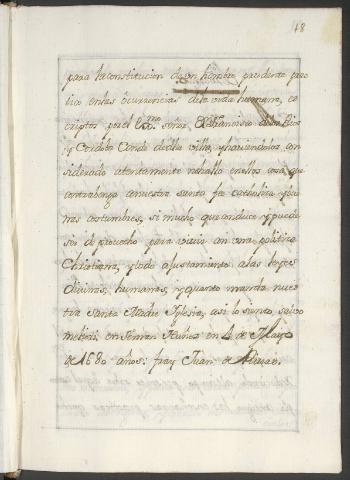 18
para la constitucion de un hombre prudente prac
tico en las ocurrencias dela vida humana, es
criptos por el Exmo señor, D Francisco delos Rios
y Cordoba Conde de dha villa, y haviendolos con
siderado atentamente no hallo en ellos cosa, que
contravenga a nuestra santa fee catholica y bue
nas costumbres, si mucho que conduce y puede
ser de provecho para vivir con una politica
Christiana, y todo ajustamiento alas leyes
divinas, humanas, y quanto manda nues
tra Santa Madre Iglesia; assi lo siento, salvo
meliori. en Fernan Nuñez en 4 de Mayo
de 1680 años: fray Juan de